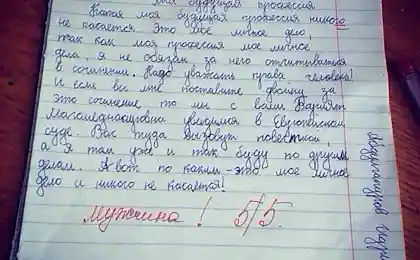 Моя будущая профессия
Какая моя будущая профессия никого
не касается. Это моё личное дело,
так как моя профессия мое личное
дело, я не обязан, за него отчитываться
в сочинении. Надо уважать права человека!
И если вы мне поставите двойку за
это сочинение то мы с вами Вариант
Магомедрасуловна увидимся в Европейском
суде. Вас туда вызовут повесткой,
а я там уже и так буду по другим
делам. А вот по каким - это мое личное
дело и никого не касается!
Мужчина! 5/5.